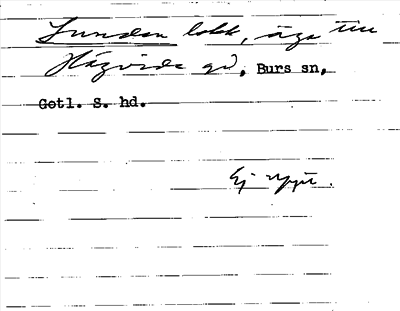 Lunden lokk, äga till
Hägvide gd, Burs sn,
Gotl. S. hd.
Ej uppt.